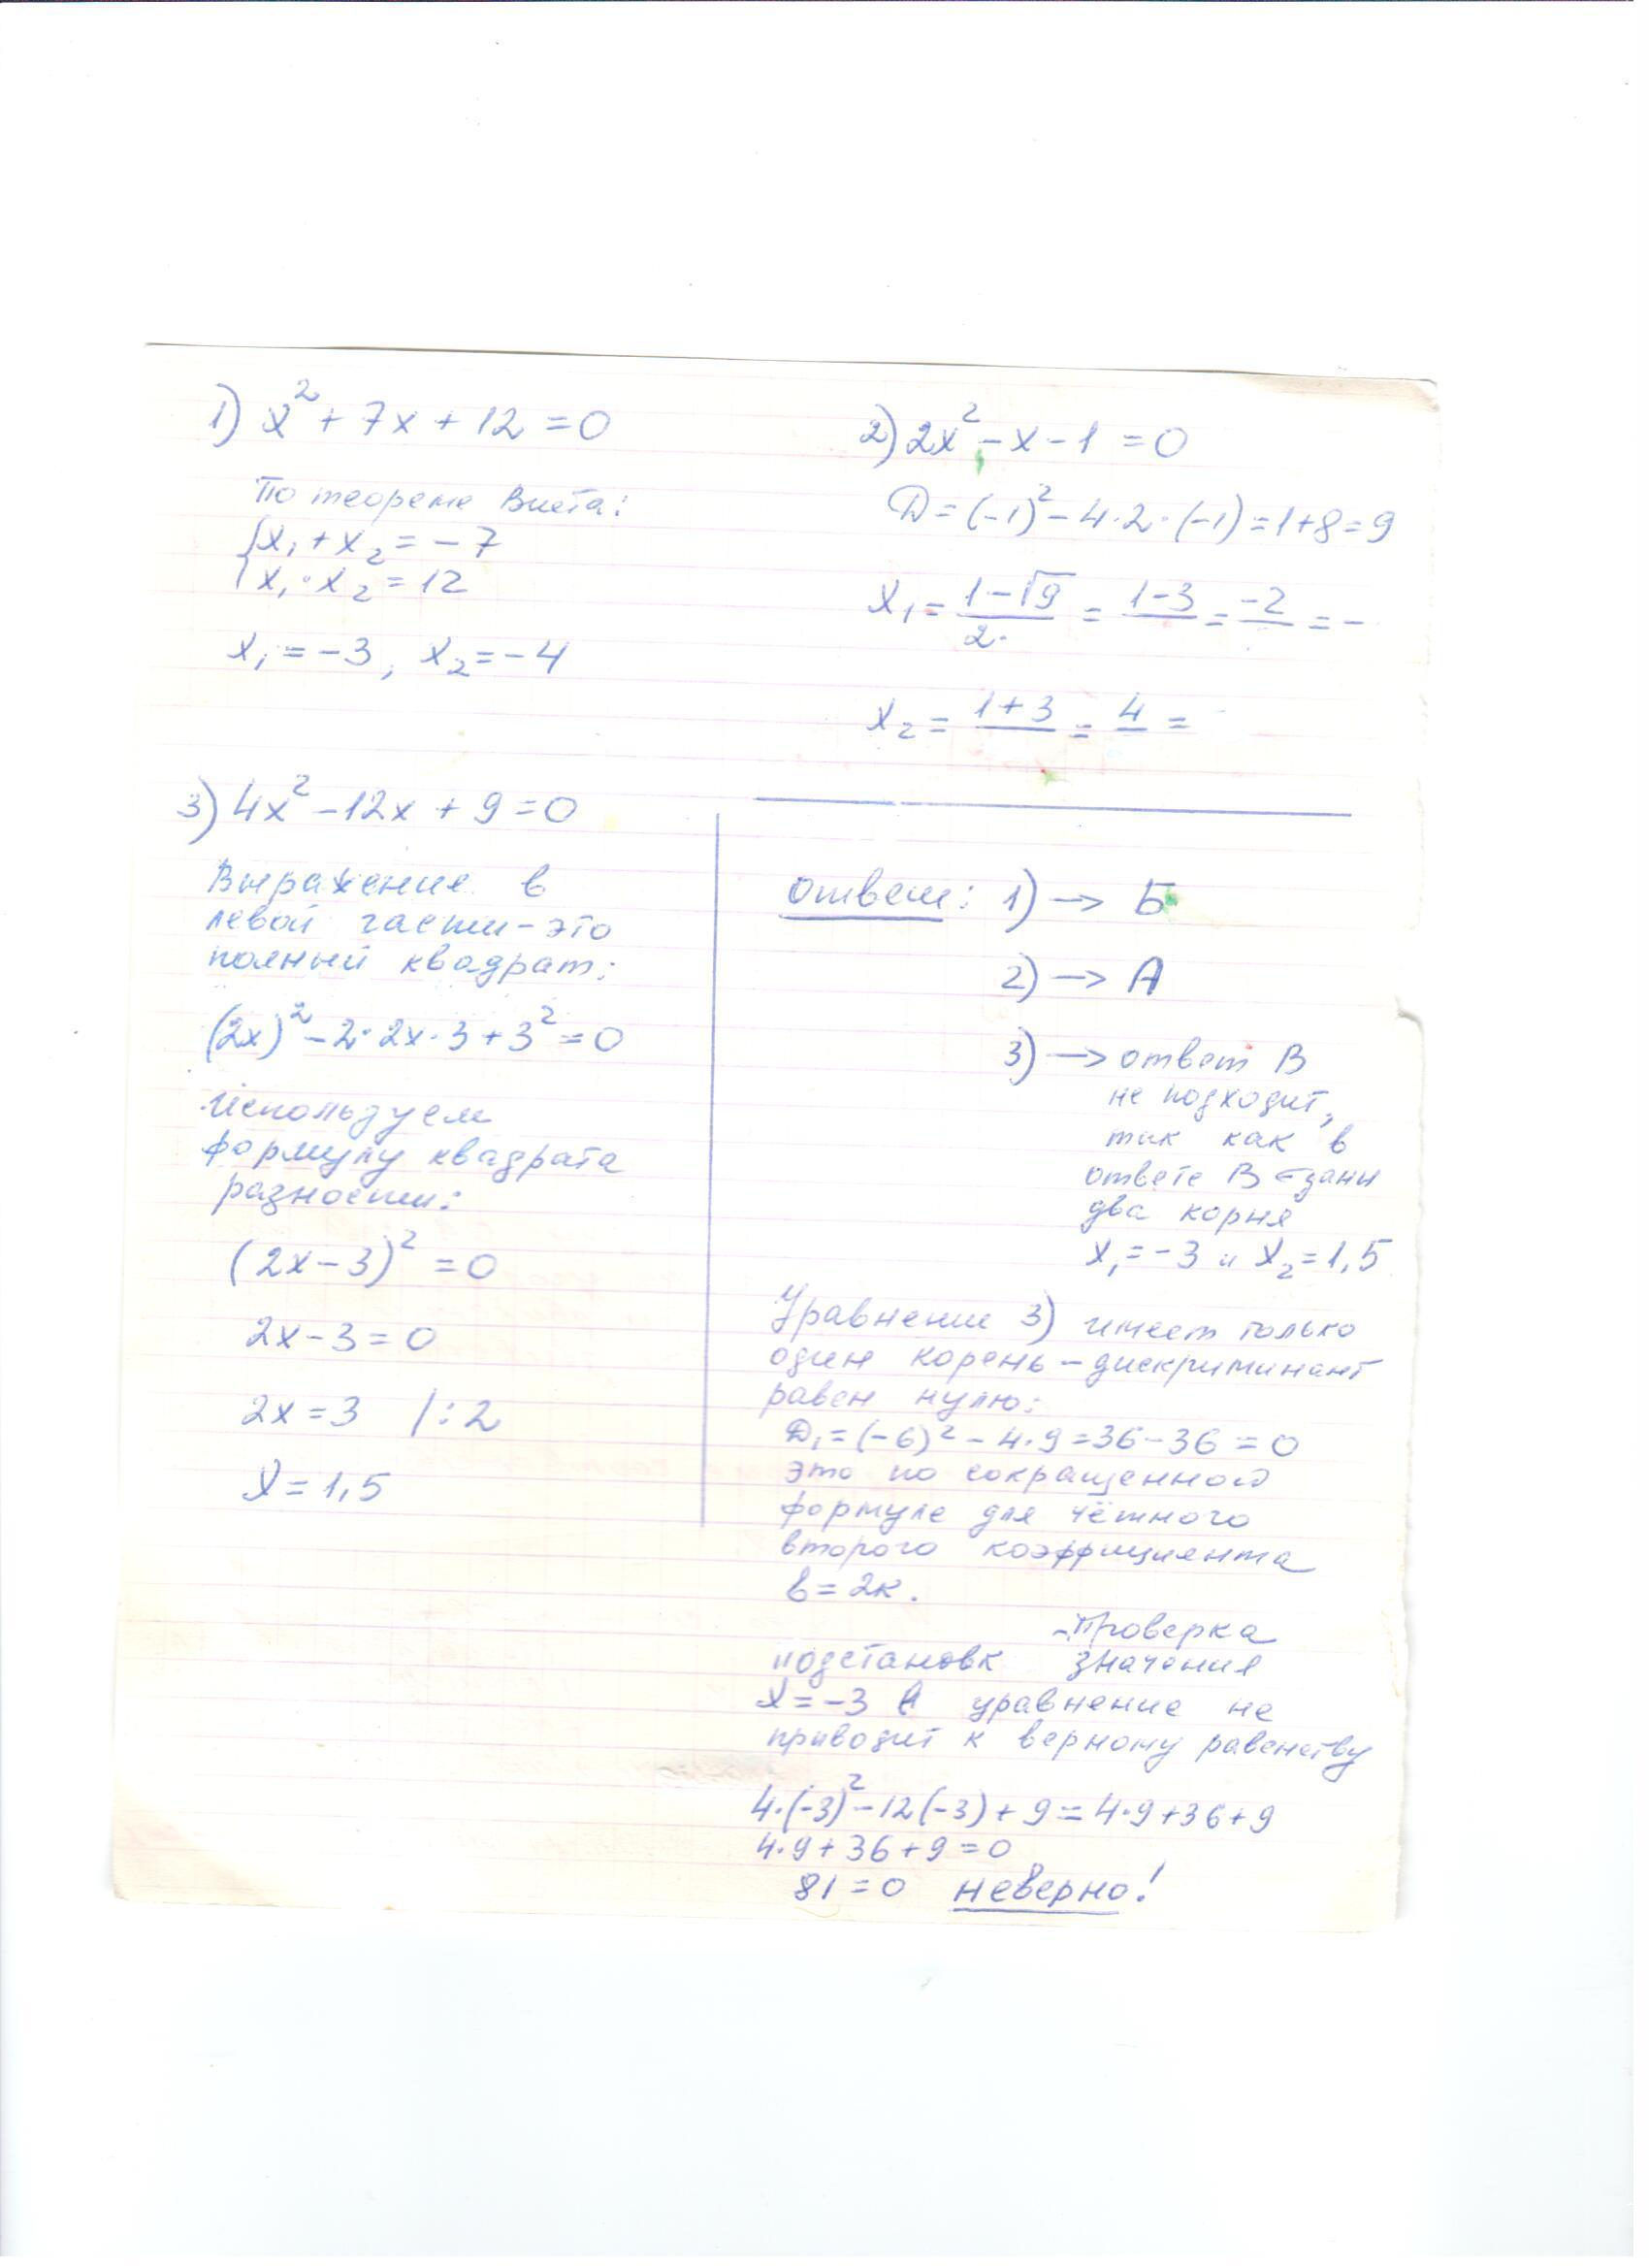 1) x² + 7x + 12 = 0
По теореме Виета:
{x₁ + x₂ = -7
x₁ · x₂ = 12
x₁ = -3, x₂ = -4
2) 2x² - x - 1 = 0
D = (-1)² - 4·2·(-1) = 1+8 = 9
x₁ = (1-√9)/2· = 1-3 = -2 = -
x₂ = 1+3 = 4 =
3) 4x² - 12x + 9 = 0
Выражение в
левой части - это
полный квадрат:
(2x)² - 2·2x·3 + 3² = 0
Используем
формулу квадрата
разности:
(2x-3)² = 0
2x - 3 = 0
2x = 3 /:2
x = 1,5
Ответ: 1) → Б
2) → А
3) → ответ В
не подходит,
так как в
ответе В
два корня
x₁ = -3 и x₂ = 1,5
Уравнение 3) имеет только
один корень - дискриминант
равен нулю:
D₁ = (-6)² - 4·9 = 36 - 36 = 0
это по сокращенной
формуле для чётного
второго коэффициента
b = 2k.
- Проверка
подстановк значения
x = -3 в уравнение не
приводит к верному равенству
4·(-3)² - 12(-3) + 9 = 4·9 + 36 + 9
4·9 + 36 + 9 = 0
81 = 0 неверно!